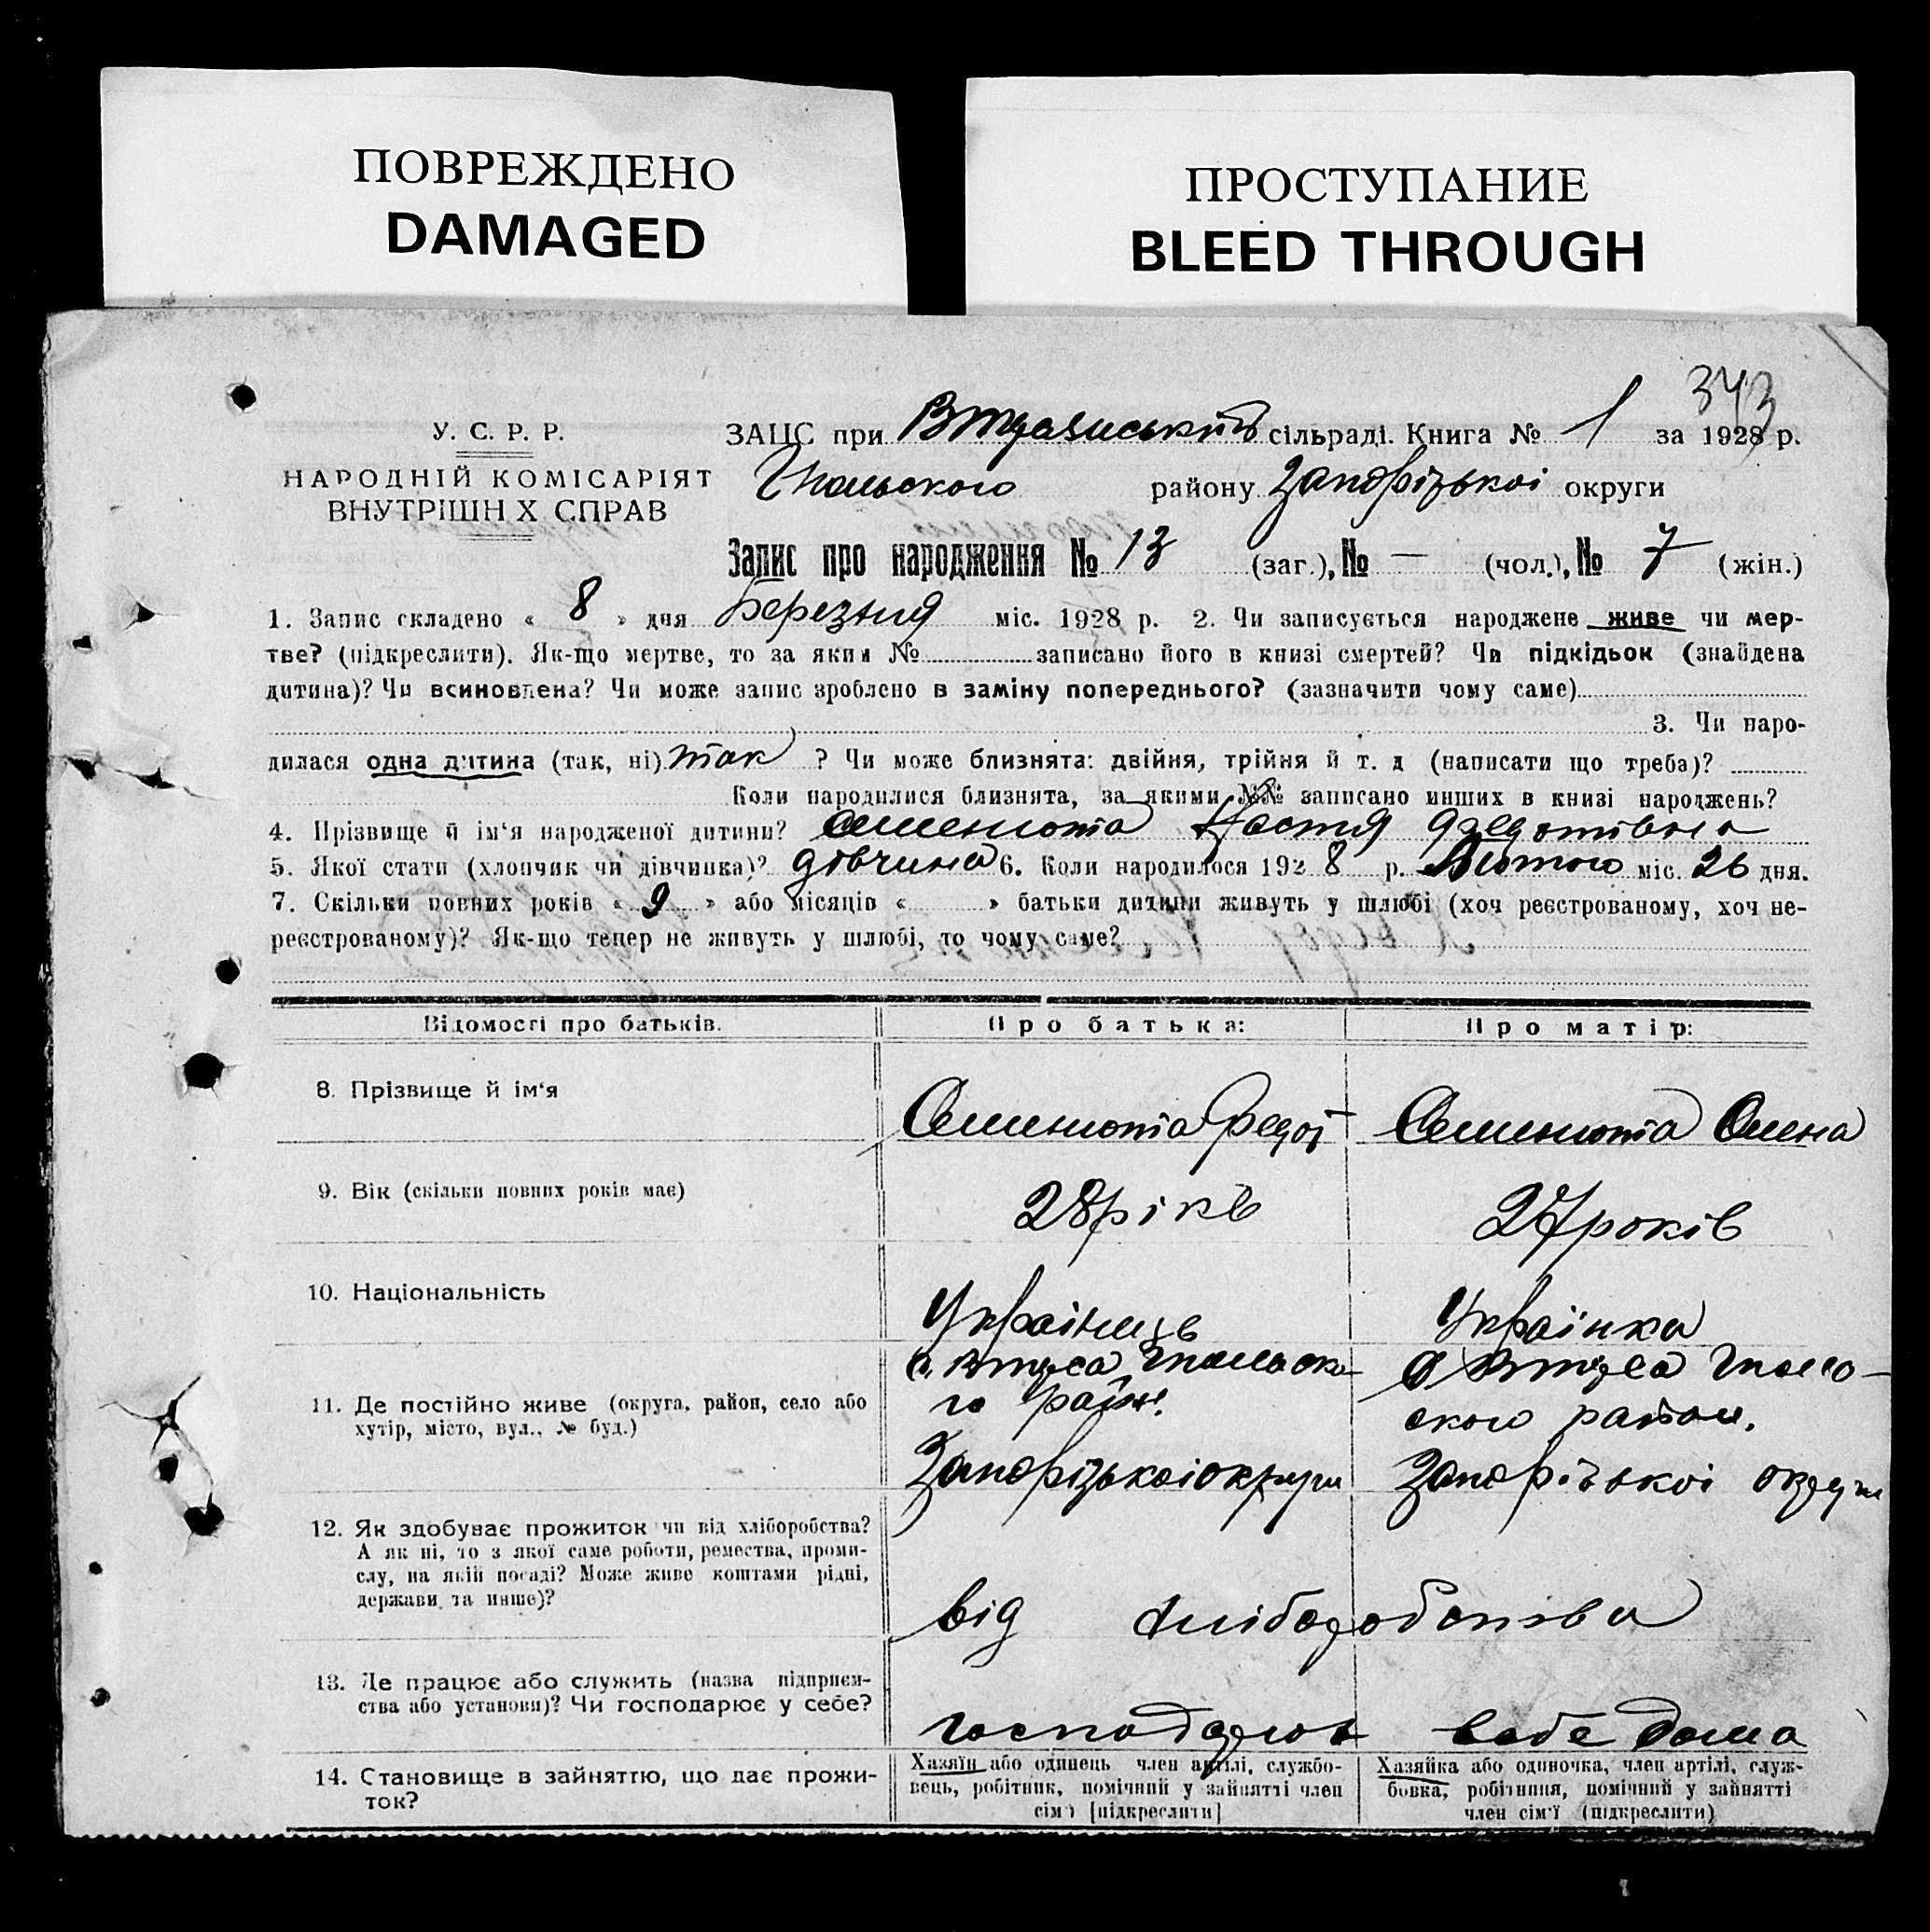 ПОВРЕЖДЕНО
DAMAGED
ПРОСТУПАНИЕ
BLEED THROUGH
343
У. С. Р. Р.
НАРОДНІЙ КОМІСАРІЯТ
ВНУТРІШН Х СПРАВ
ЗАЦС при сільраді. Книга № 1 за 1928 р.
району Запорізькоі округи
Запис про народження № 13 (заг.), № — (чол.), № 7 (жін.)
1. Запис складено « 8 » дня Березня міс. 1928 р. 2. Чи записується народжене живе чи мер-
тве? (підкреслити). Як-що мертве, то за яким № записано його в книзі смертей? Чи підкідьок (знайдена
дитина)? Чи всиновлена? Чи може запис зроблено в заміну попереднього? (зазначити чому саме)
3. Чи наро-
дилася одна дитина (так, ні) так ? Чи може близнята: двійня, трійня й т. д (написати що треба)?
Коли народилися близнята, за якими №№ записано инших в книзі народжень?
4. Прізвище й ім'я народженої дитини? Семенюта Настя Федотівна
5. Якої стати (хлопчик чи дівчинка)? дівчина 6. Коли народилося 1928 р. Лютого міс. 26 дня.
7. Скільки повних років « 9 » або місяців « » батьки дитини живуть у шлюбі (хоч реєстрованому, хоч не-
реєстрованому)? Як-що тепер не живуть у шлюбі, то чому саме?
Відомості про батьків.
Про батька:
Про матір:
8. Прізвище й ім'я
Семенюта Федот
Семенюта Олена
9. Вік (скільки повних років має)
28 рікв
27 років
10. Національність
Українець
Українка
11. Де постійно живе (округа, район, село або
хутір, місто, вул., № буд.)
го район.
Запорізькоі округи
ського район.
Запорізькоі округи
12. Як здобуває прожиток чи від хліборобства?
А як ні, то з якої саме роботи, ремества, проми-
слу, на якій посаді? Може живе коштами рідні,
держави та инше)?
від хліборобства
13. Де працює або служить (назва підприєм-
ства або установи)? Чи господарює у себе?
господарюв вебе дома
14. Становище в зайняттю, що дає прожи-
ток?
Хазяїн або одинець член артілі, службо-
вець, робітник, помічний у зайнятті член
сім'ї [підкреслити]
Хазяйка або одиночка, член артілі, служ-
бовка, робітниця, помічний у зайнятті
член сім'ї (підкреслити)